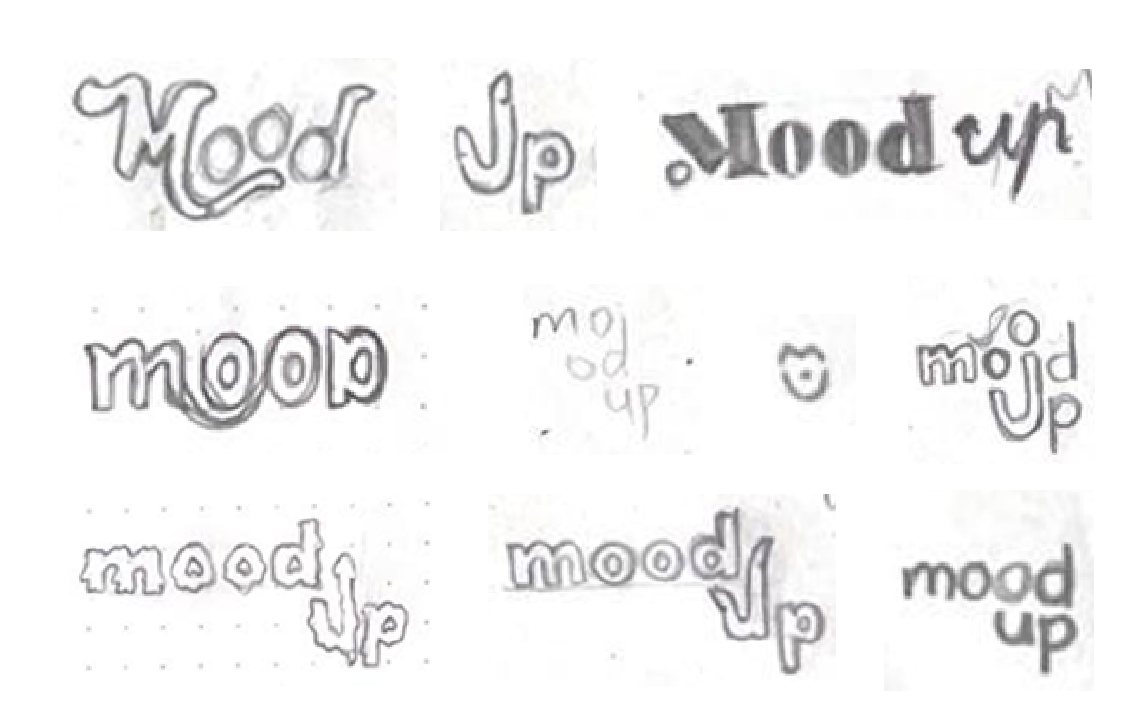 Mood
Up
Mood up
mood
mo
od
up
mood
up
mood
up
mood
up
mood
up